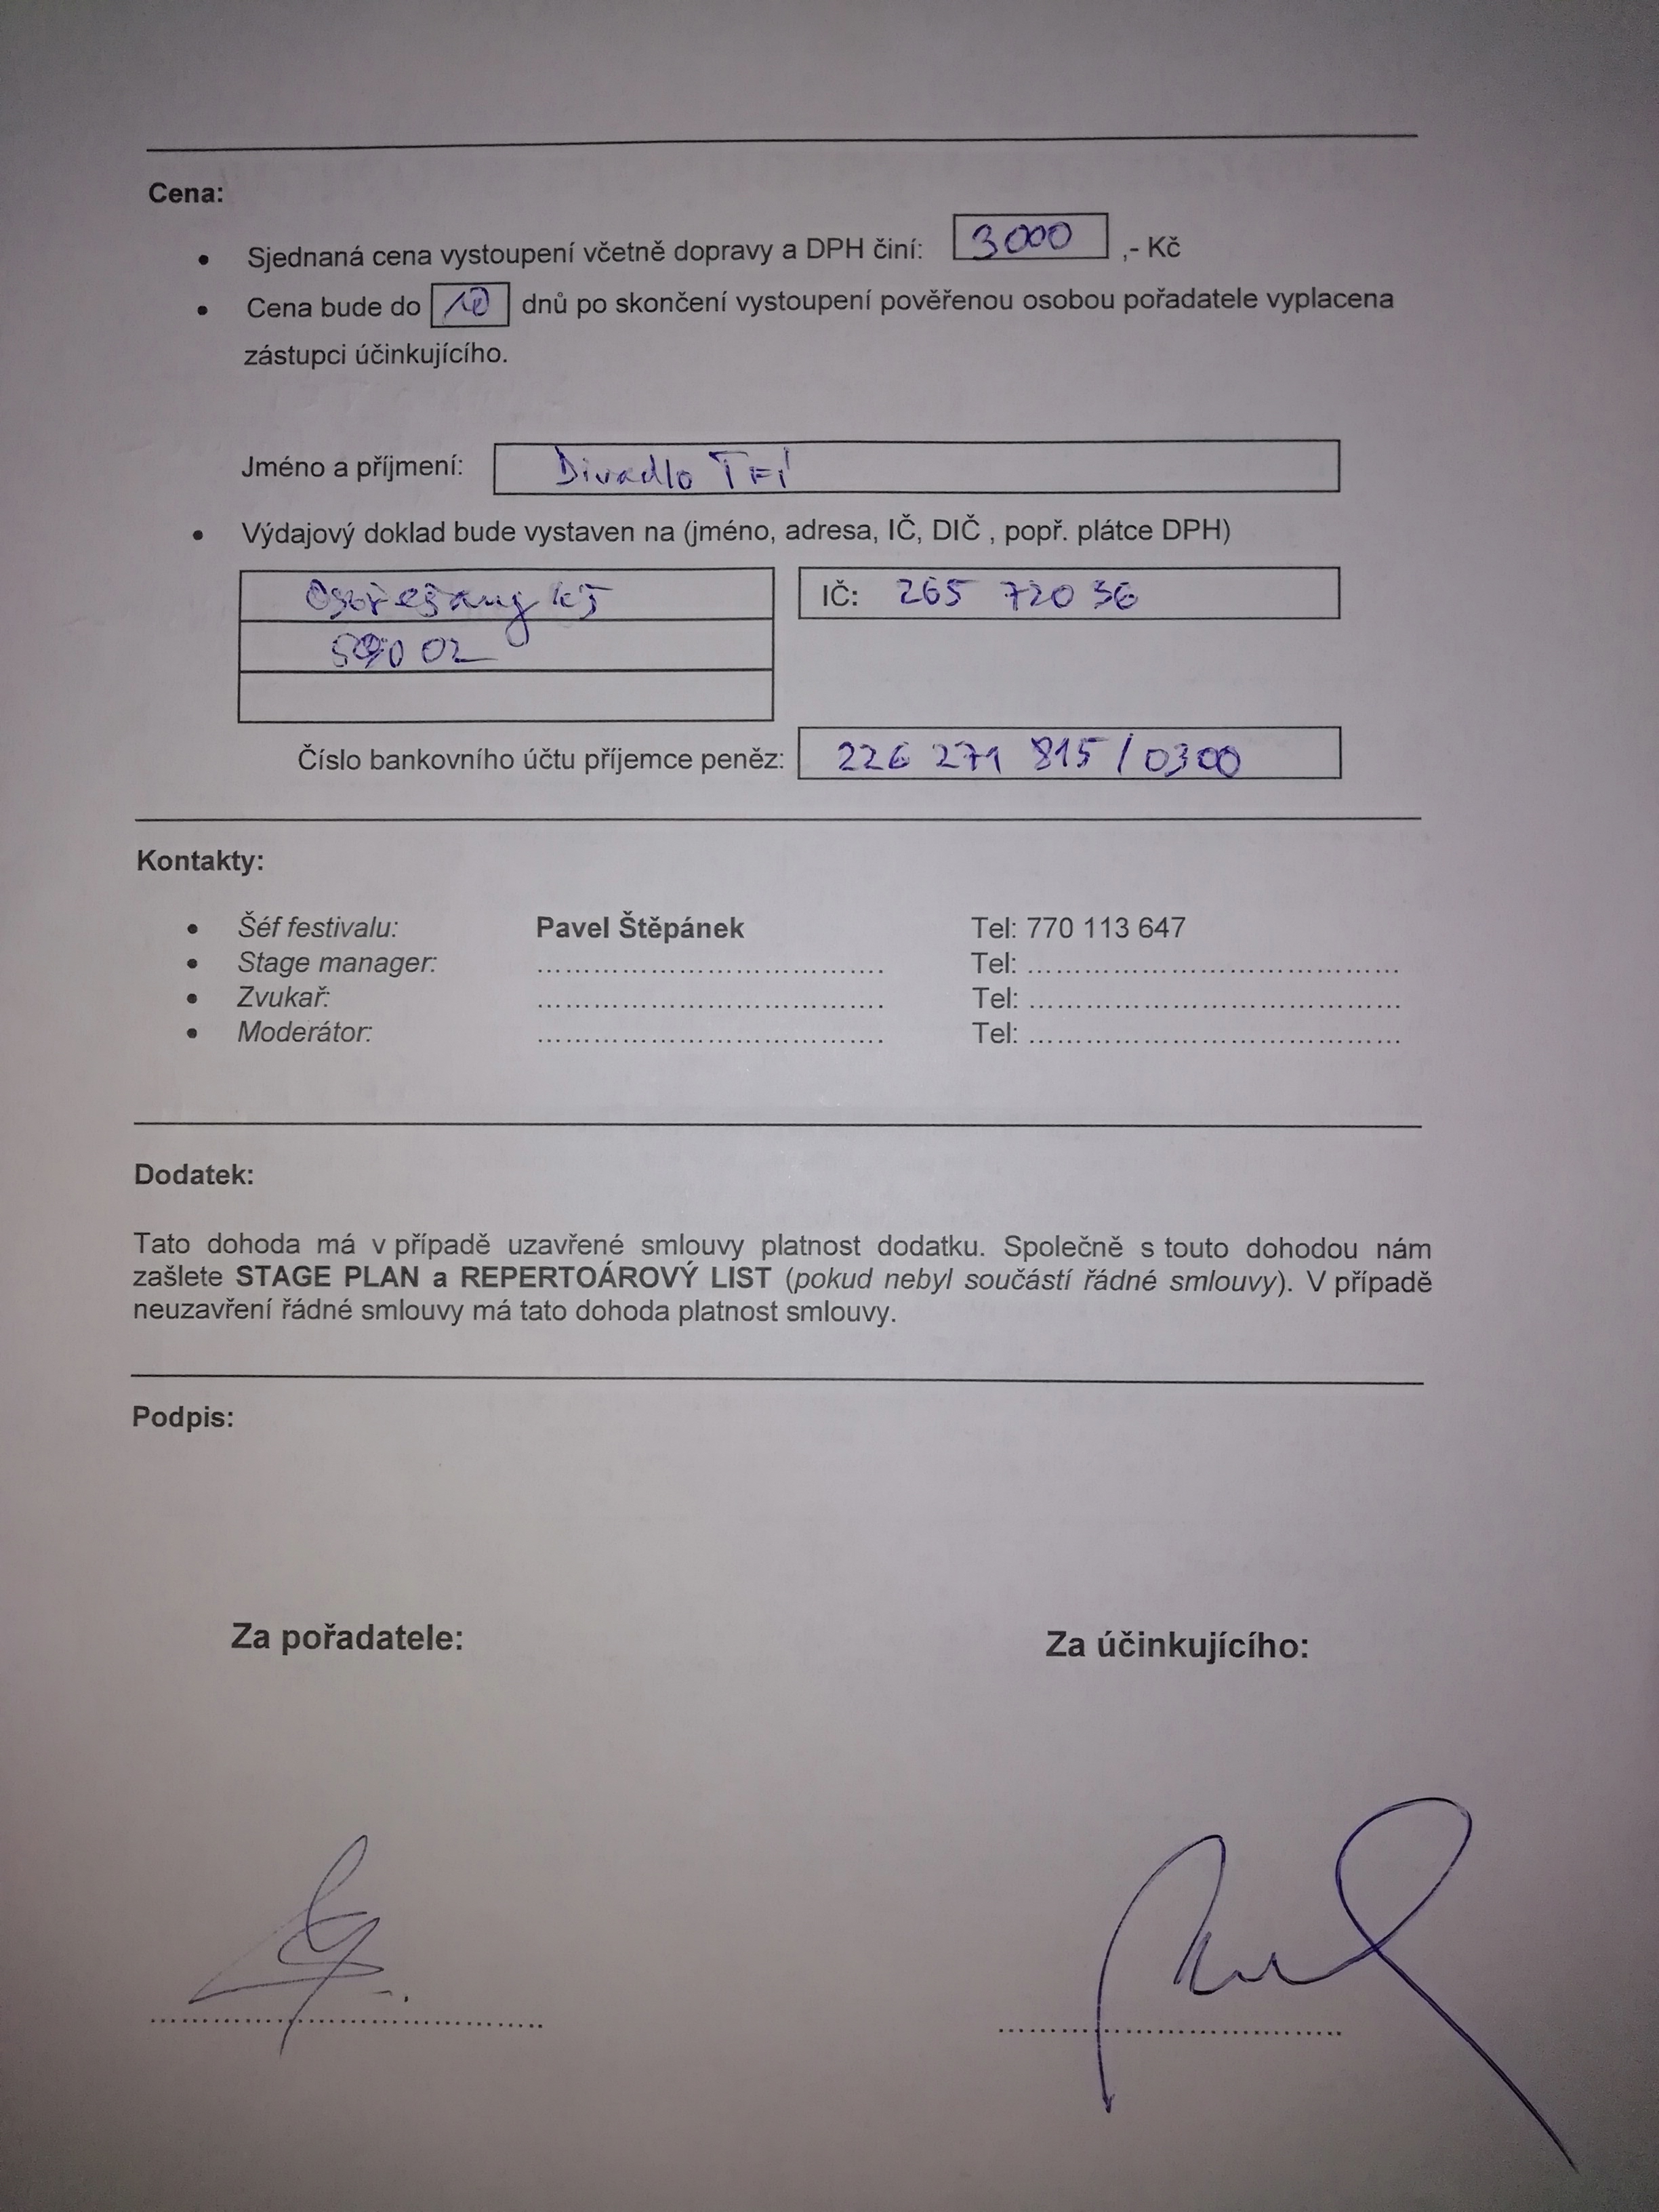 Cena:
• Sjednaná cena vystoupení včetně dopravy a DPH činí: 3000 ,- Kč
• Cena bude do 10 dnů po skončení vystoupení pověřenou osobou pořadatele vyplacena
zástupci účinkujícího.
Jméno a příjmení: Divadlo Tří
• Výdajový doklad bude vystaven na (jméno, adresa, IČ, DIČ , popř. plátce DPH)
IČ: 265 720 36
590 02
Číslo bankovního účtu příjemce peněz: 226 271 815 / 0300
Kontakty:
• Šéf festivalu: Pavel Štěpánek Tel: 770 113 647
• Stage manager: ........................................ Tel: ........................................
• Zvukař: ........................................ Tel: ........................................
• Moderátor: ........................................ Tel: ........................................
Dodatek:
Tato dohoda má v případě uzavřené smlouvy platnost dodatku. Společně s touto dohodou nám
zašlete STAGE PLAN a REPERTOÁROVÝ LIST (pokud nebyl součástí řádné smlouvy). V případě
neuzavření řádné smlouvy má tato dohoda platnost smlouvy.
Podpis:
Za pořadatele: Za účinkujícího: